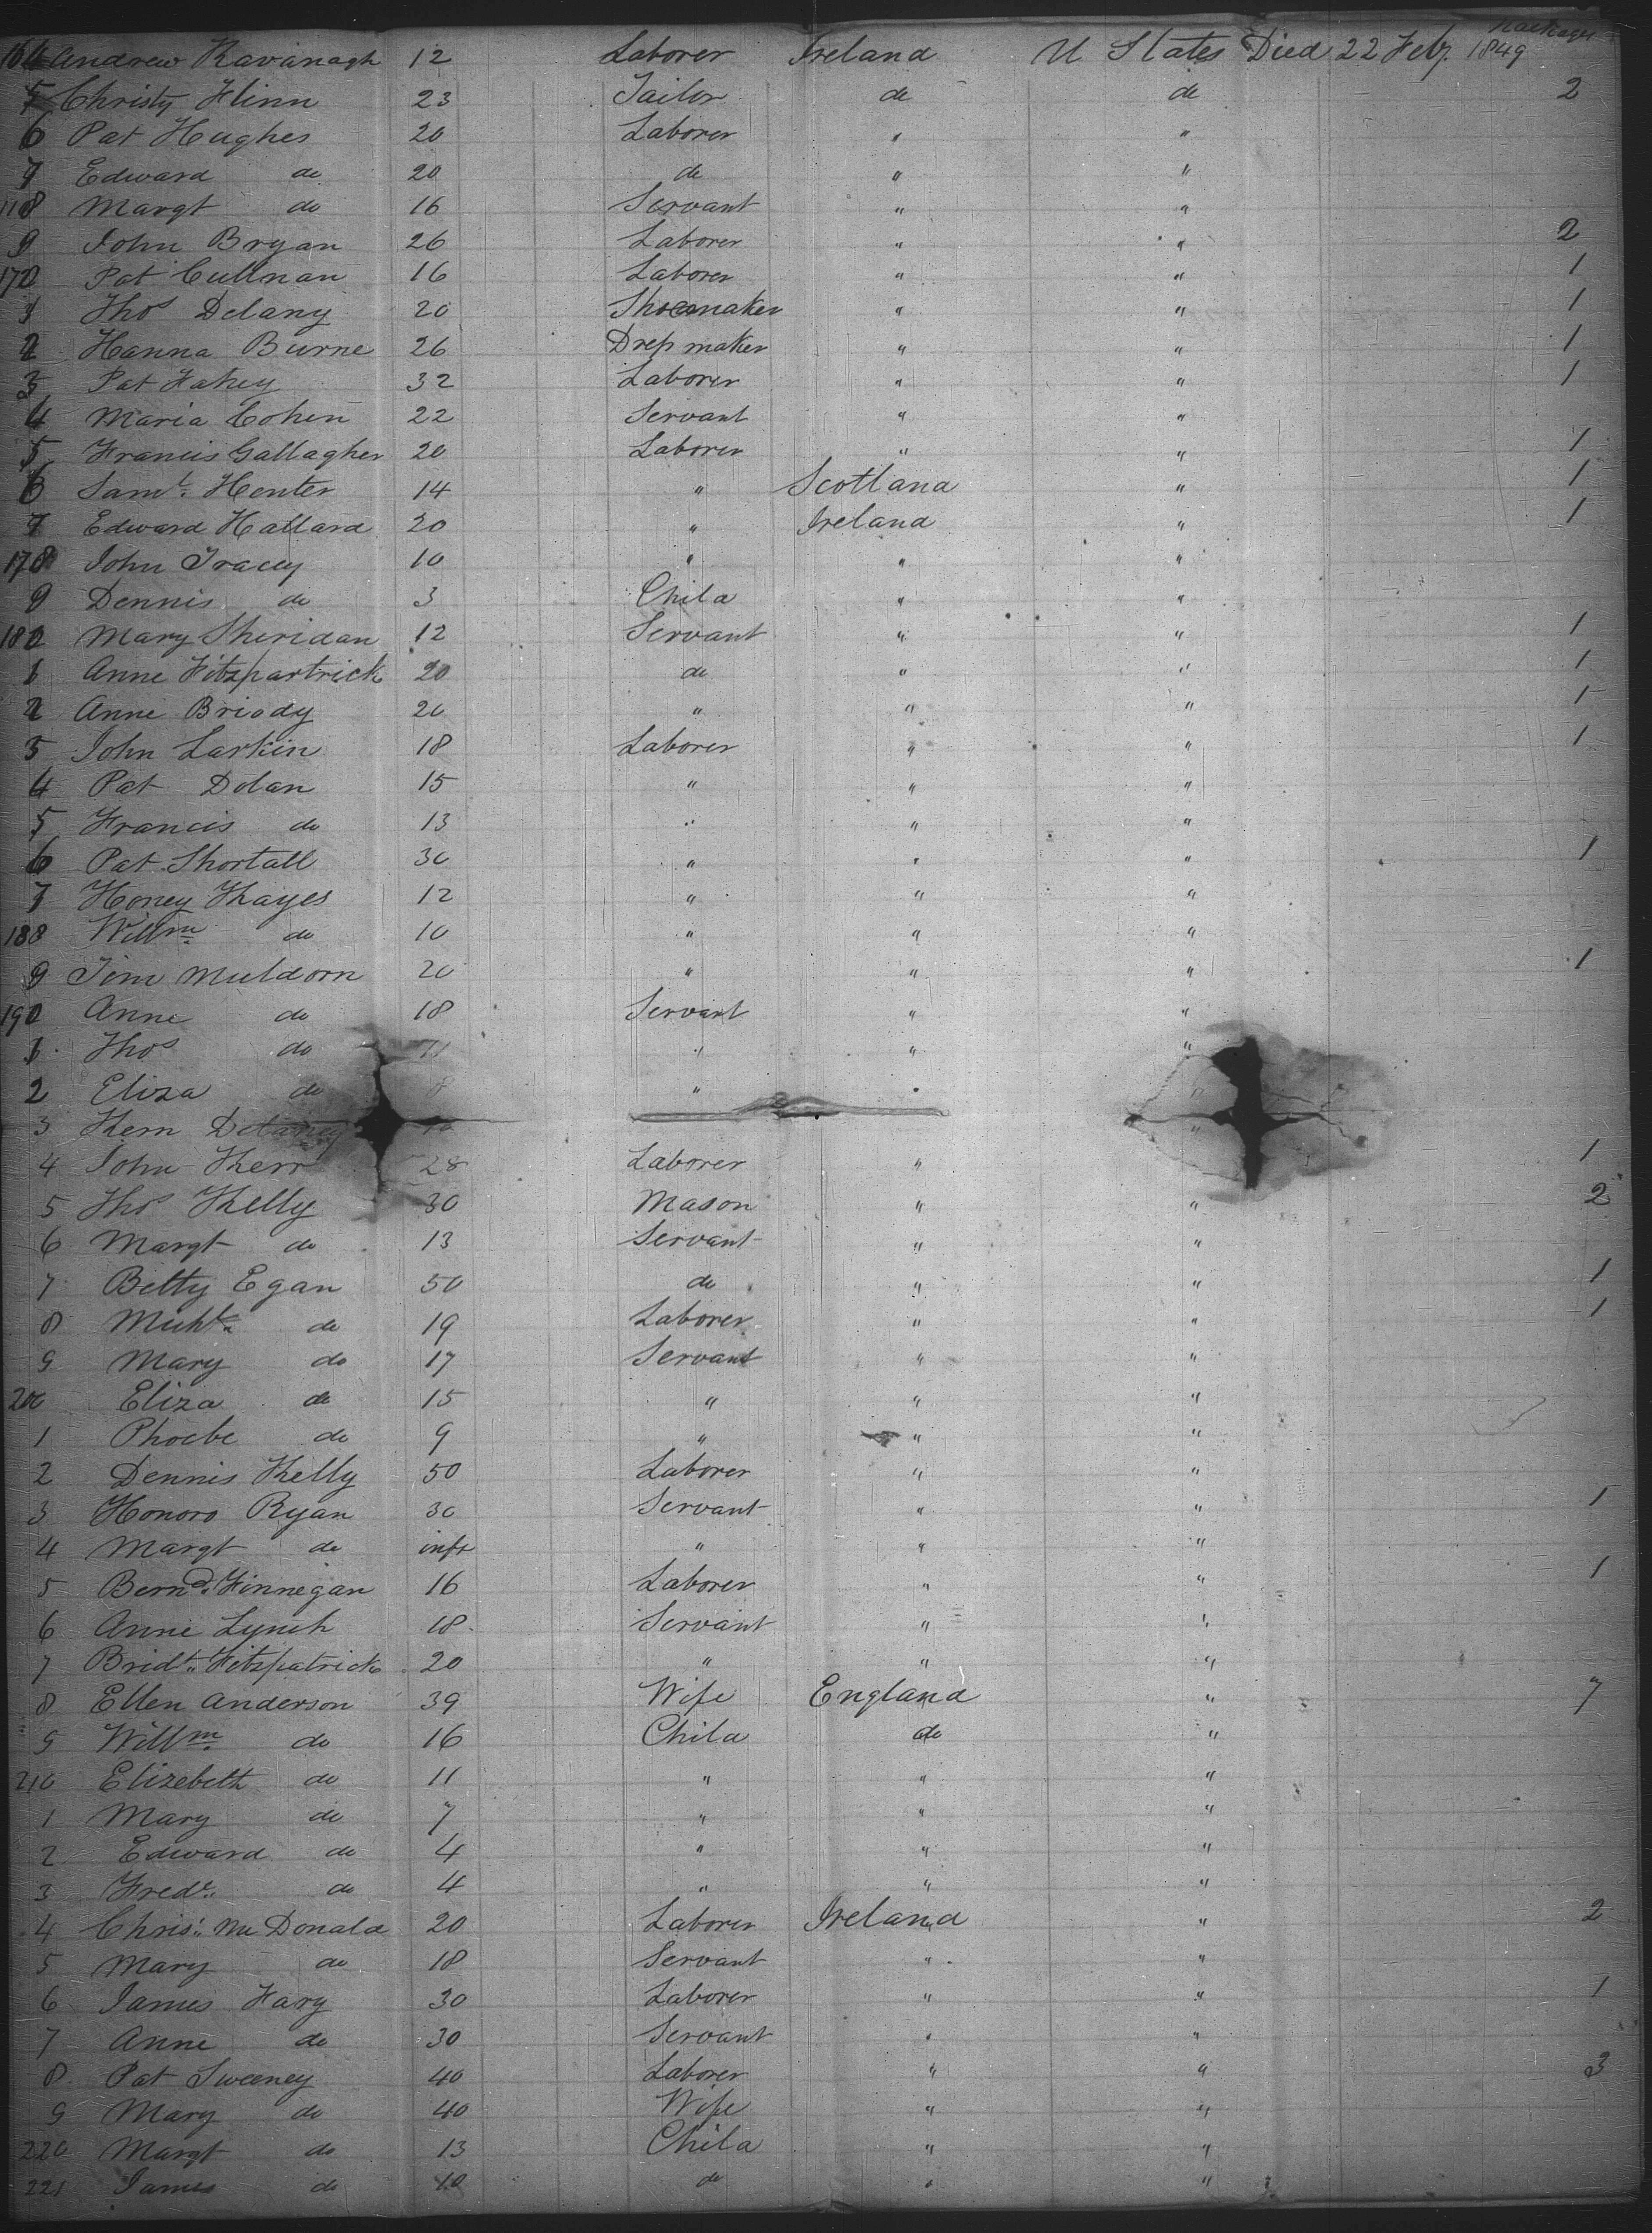 Packages
164 Andrew Kavanagh 12 Laborer Ireland U States Died 22 Feby. 1849
5 Christy Flinn 23 Tailor do do 2
6 Pat Hughes 20 Laborer " "
7 Edward do 20 do " "
168 Margt do 16 Servant " "
9 John Bryan 26 Laborer " " 2
170 Pat Cullnan 16 Laborer " " 1
Thos Delany 20 Shoemaker " " 1
2 Hanna Burne 26 Dress maker " " 1
3 Pat Fahey 32 Laborer " " 1
4 Maria Cohen 22 Servant " "
5 Francis Gallagher 20 Laborer " " 1
6 Saml. Henter 14 " Scotland " 1
7 Edward Hallard 20 " Ireland " 1
178 John Tracey 10 " " "
9 Dennis do 3 Child " "
180 Mary Sheridan 12 Servant " " 1
1 Anne Fitzpartrick 20 do " " 1
2 Anne Briody 20 " " " 1
3 John Larkin 18 Laborer " " 1
4 Pat Dolan 15 " " "
5 Francis do 13 " " "
6 Pat Shortall 30 " " " 1
7 Honey Khayes 12 " " "
188 Willm do 10 " " "
9 Jim Muldorn 20 " " " 1
190 Anne do 18 Servant " "
1 Thos do 11 " " "
2 Eliza do 8 " "
3 Kern Delaney "
4 John Kerr 28 Laborer " " 1
5 Thos Kelly 30 Mason " " 2
6 Margt do 13 Servant " "
7 Betty Egan 50 do " " 1
8 Michl. do 19 Laborer " " 1
9 Mary do 17 Servant " "
200 Eliza do 15 " " "
1 Phoebe do 9 " " "
2 Dennis Kelly 50 Laborer " "
3 Honoro Ryan 30 Servant " " 1
4 Margt do inft " " "
5 Bernd. Finnegan 16 Laborer " " 1
6 Anne Lynch 18 Servant " "
7 Bridt. Fitzpatrick 20 " " "
8 Ellen Anderson 39 Wife England " 7
9 Willm do 16 Child do "
210 Elizebeth do 11 " " "
1 Mary do 7 " " "
2 Edward do 4 " " "
3 Fredk. do 4 " " "
4 Chris. Mc Donald 20 Laborer Ireland " 2
5 Mary do 18 Servant " "
6 James Fary 30 Laborer " " 1
7 Anne do 30 Servant " "
8 Pat Sweeney 40 Laborer " " 3
9 Mary do 40 Wife " "
220 Margt do 13 Child " "
221 James do 10 do " "